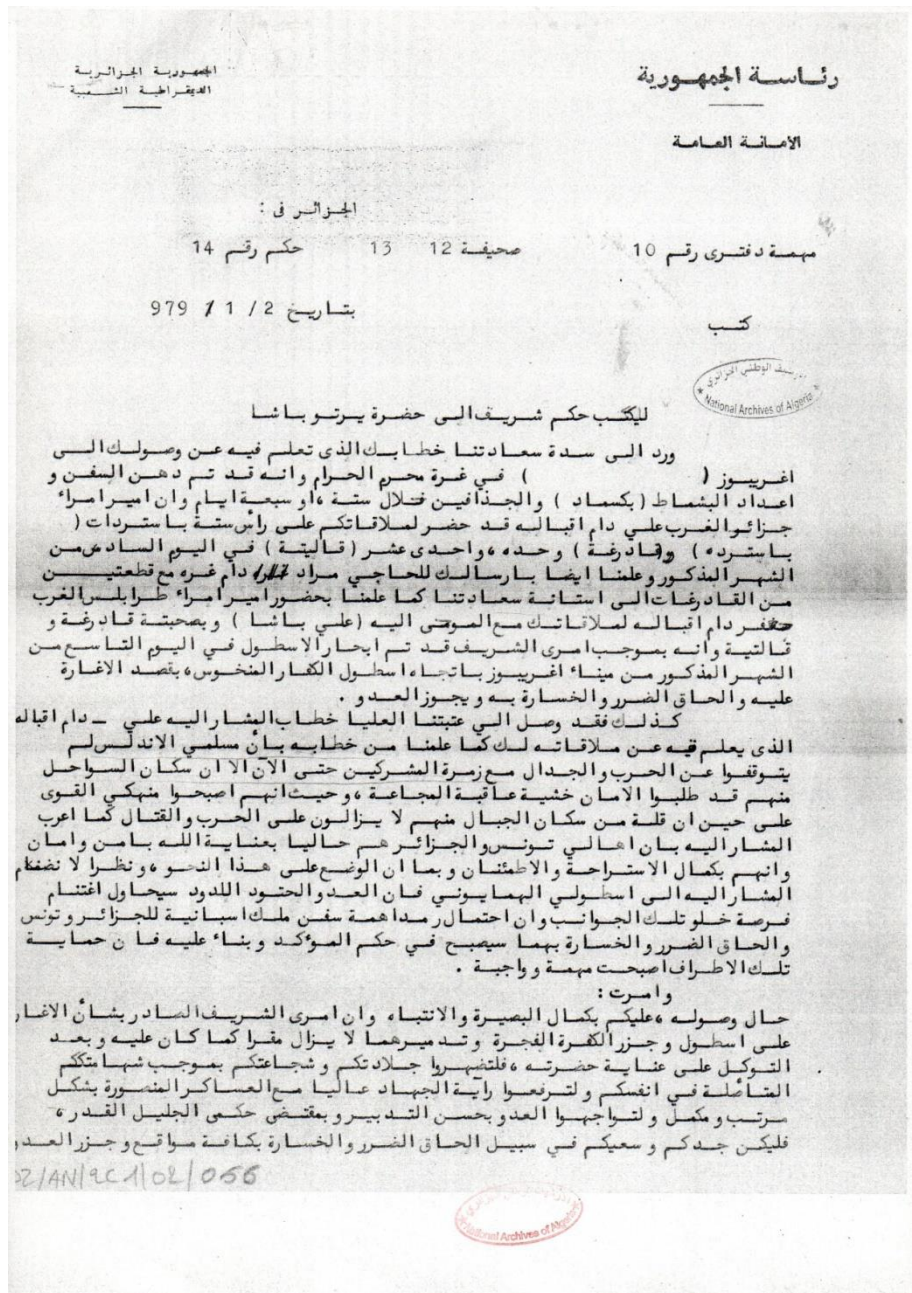 رئاسة الجمهورية
الجمهورية الجزائرية
الديمقراطية الشعبية
الأمانة العامة
الجزائر في :
مهمة دفترى رقم 10 صحيفة 12 13 حكم رقم 14
كتب بتاريخ 2 / 1 / 979
الوطني الجزائري
National Archives of Algeria
لليكتب حكم شريف الى حضرة برتو باشا
ورد الى سدة سعادتنا خطابك الذى تعلم فيه عن وصولك الى
اغريبوز ( ) في غرة محرم الحرام وانه قد تم دهن السفن و
اعداد البشماط ( بكسماد ) والجذافين خلال ستة ،او سبعة ايام وان امير امراء
جزائر الغرب علي دام اقباله قد حضر لملاقاتكم على رأس ستة باستردات (
باسترده ) وقادرغة ) وحده ،واحدى عشر ( قاليتة ) في اليوم السادس من
الشهر المذكور وعلمنا ايضا بارسالك للحاجي مراد دام غره مع قطعتيــن
من القادرغات الى استانة سعادتنا كما علمنا بحضور امير امراء طرابلس الغرب
جعفر دام اقباله لملاقاتك مع المومى اليه (علي باشا ) وبصحبتة قادرغة و
قالتية وانه بموجب امرى الشريف قد تم ابحار الاسطول في اليوم التاسع من
الشهر المذكور من ميناء اغريبوز باتجاه اسطول الكفار المنخوس، بقصد الاغارة
عليه والحاق الضرر والخسارة به وبجوز العدو .
كذلك فقد وصل الي عتبتنا العليا خطاب المشار اليه علي – دام اقباله
الذى يعلم فيه عن ملاقاته لك كما علمنا من خطابه بأن مسلمي الاندلس لم
يتوقفوا عن الحرب والجدال مع زمرة المشركين حتى الآن الا ان سكان السواحل
منهم قد طلبوا الامان خشية عاقبة المجاعة ،وحيث انهم اصبحوا منهكي القوى
على حين ان قلة من سكان الجبال منهم لا يزالون على الحرب والقتال كما اعرب
المشار اليه بان اهالي تونس والجزائر هم حاليا بعناية الله بامن وامان
وانهم بكمال الاستراحة والاطمئنان وبما ان الوضع على هذا النحو ،ونظرا لا نضمام
المشار اليه الى اسطولي الهمايوني فان العدو الحتود اللدود سيحاول اغتنام
فرصة خلو تلك الجوانب وان احتمال رمداهمة سفن ملك اسبانية للجزائر وتونس
والحاق الضرر والخسارة بهما سيصبح في حكم المؤكد وبناء عليه فان حمايــة
تلك الاطراف اصبحت مهمة وواجبة .
وامرت :
حال وصوله ،عليكم بكمال البصيرة والانتباه وان امرى الشريف الصادر بشأن الاغار
على اسطول وجزر الكفرة الفجرة وتدميرهما لا يزال مقرا كما كان عليه وبعد
التوكل على عناية حضرته ، فلتضهروا جلادتكم وشجاعتكم بموجب شهامتكم
المتأصلة في انفسكم ولترفعوا راية الجهاد عاليا مع العساكر المنصورة بشكل
مرتب ومكمل ولتواجهوا العدو بحسن التدبير وبمقتضى حكمى الجليل القدر ،
فليكن جدكم وسعيكم في سبيل الحاق الضرر والخسارة بكافة مواقع وجزر العدو
DZ/AN/2C1/02/056
National Archives of Algeria